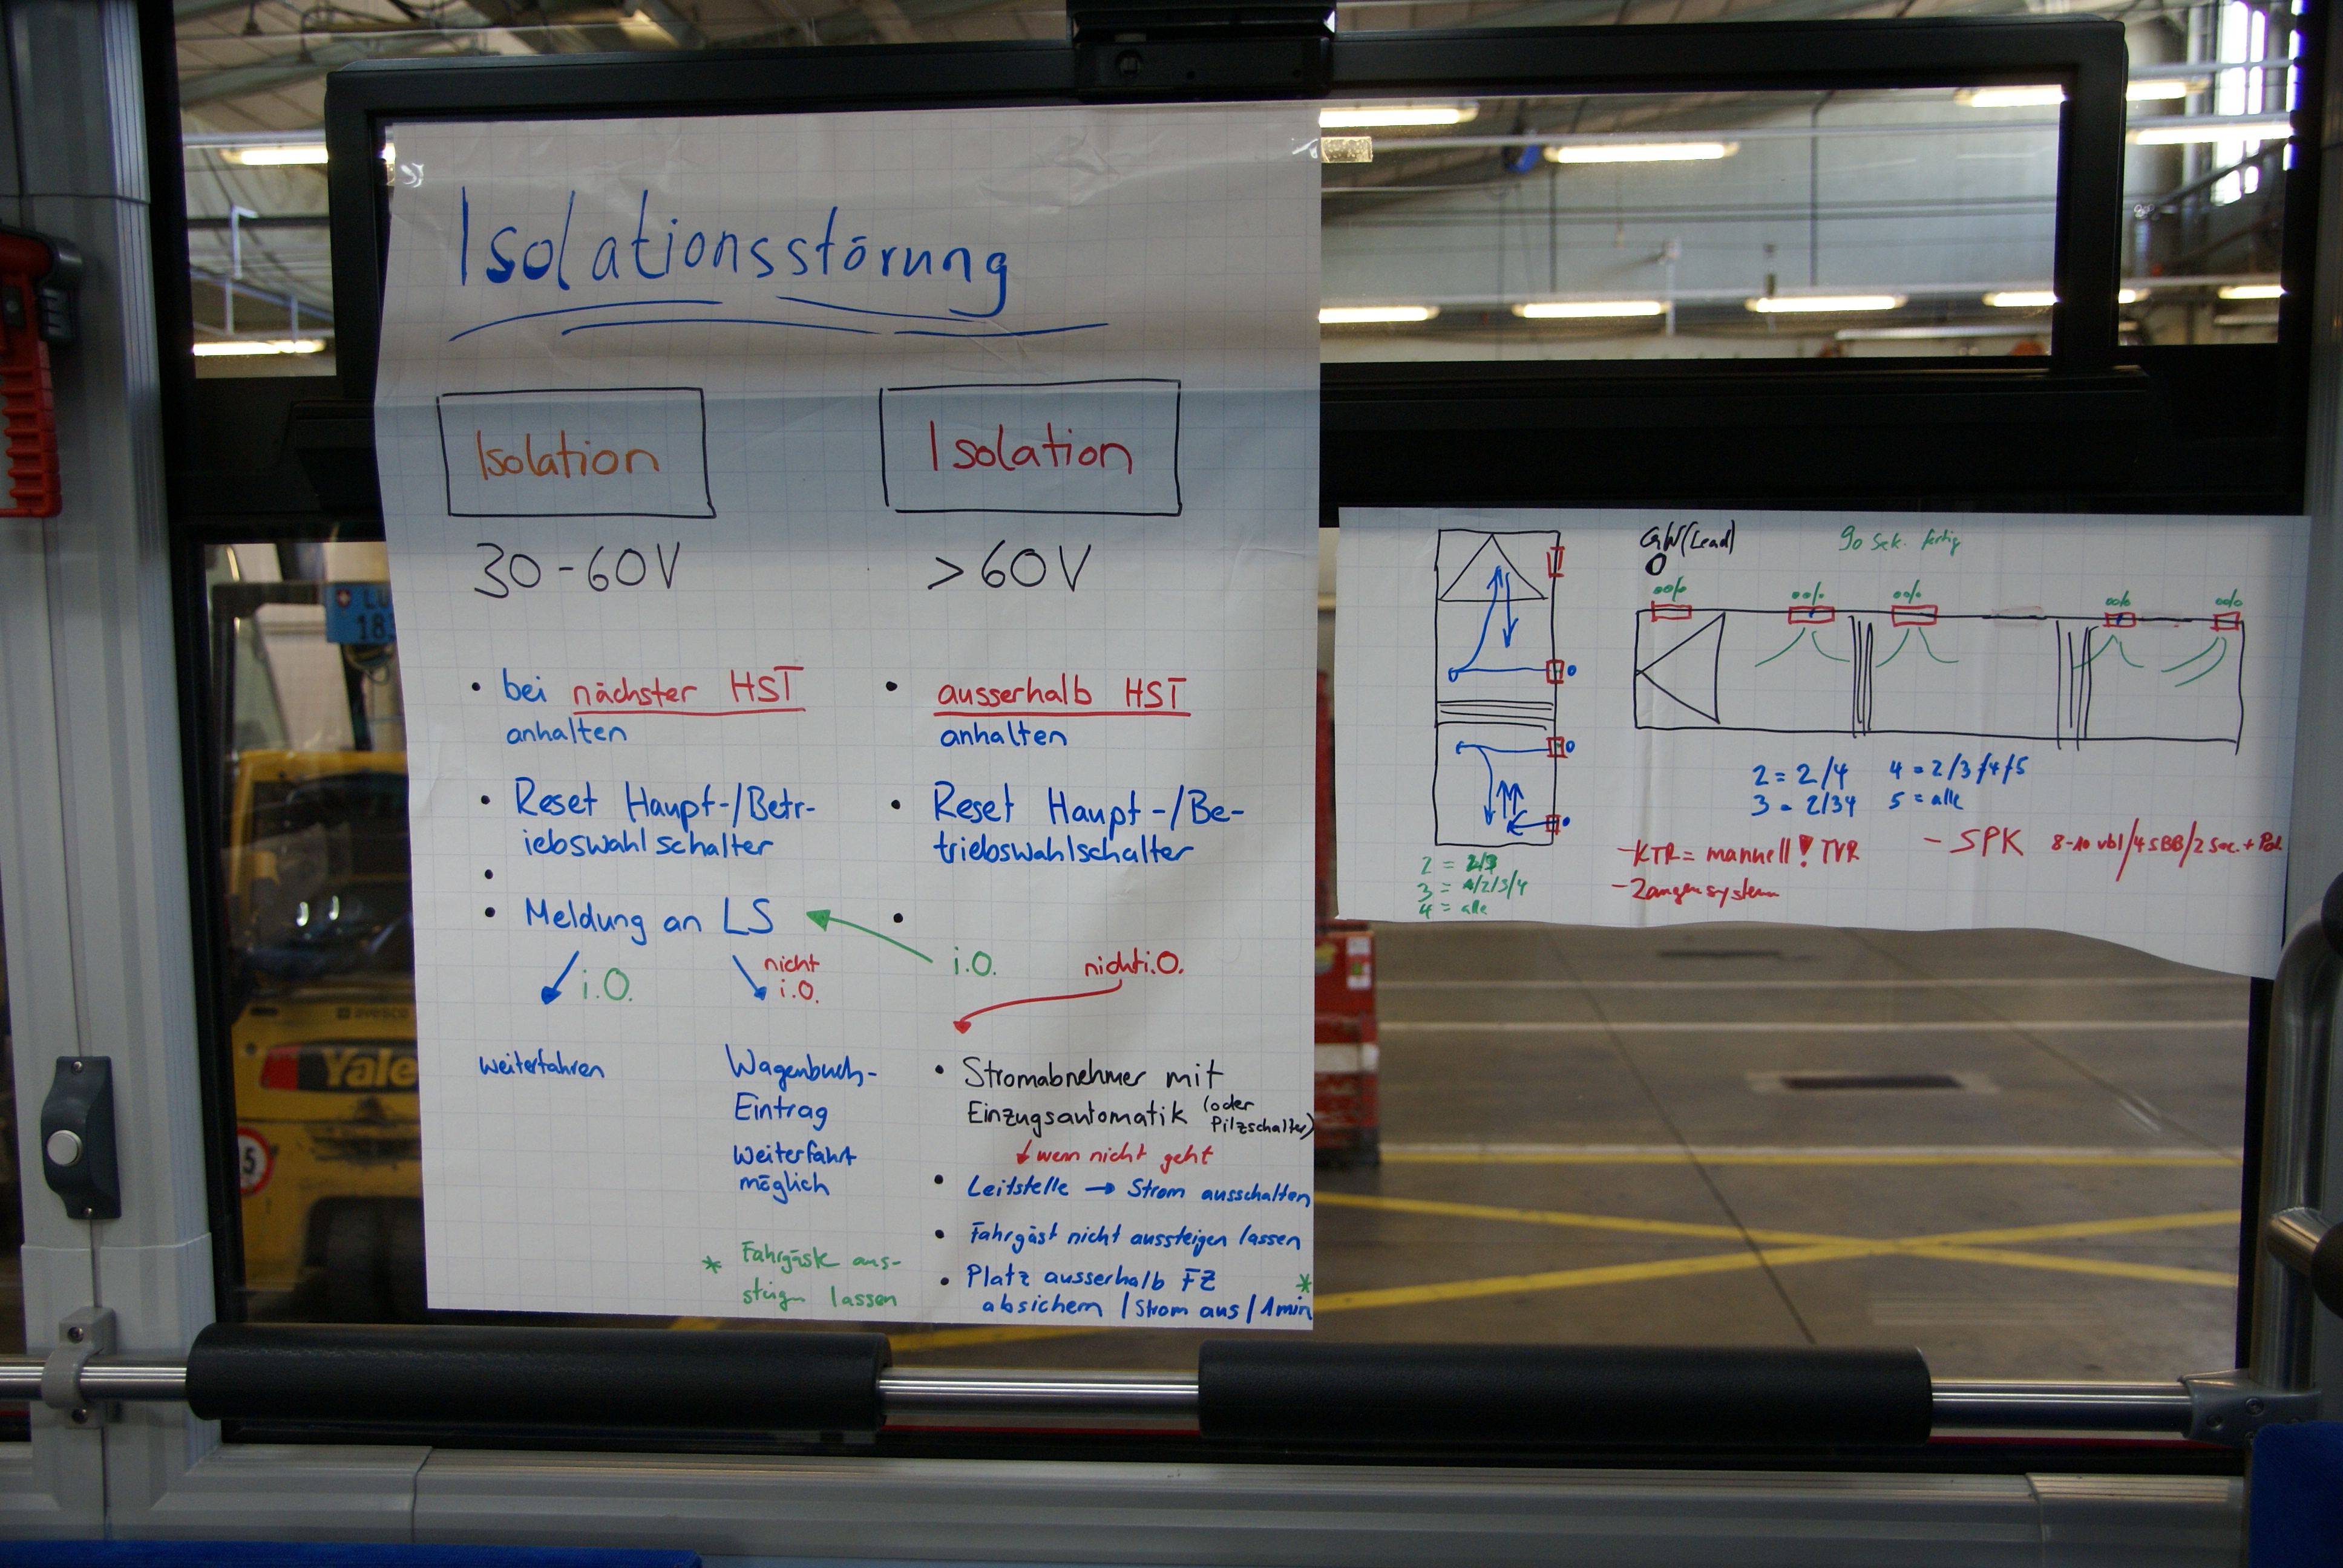 Isolationsstörung
Isolation
30-60V
• bei nächster HST
anhalten
• Reset Haupt-/Betr-
iebswahlschalter
•
• Meldung an LS
i.O.
nicht
i.O.
weiterfahren
Wagenbuch-
Eintrag
Weiterfahrt
möglich
* Fahrgäste aus-
steigen lassen
Isolation
>60V
• ausserhalb HST
anhalten
• Reset Haupt-/Be-
triebswahlschalter
•
i.O.
nicht i.O.
• Stromabnehmer mit
Einzugsautomatik (oder
Pilzschalter)
wenn nicht geht
• Leitstelle → Strom ausschalten
• Fahrgäst nicht aussteigen lassen
• Platz ausserhalb FZ *
absichern / Strom aus / 1min
2 = 2/3
3 = 1/2/3/4
4 = alle
GW(Lead)
90 Sek. fertig
2 = 2/4
3 = 2/34
4 = 2/3/4/5
5 = alle
- KTR = manuell! TVR
- Zangensystem
- SPK 8-10 vbl/4 SBB/2 Sec. + Pol.
Yale
avesco
LU
18
5